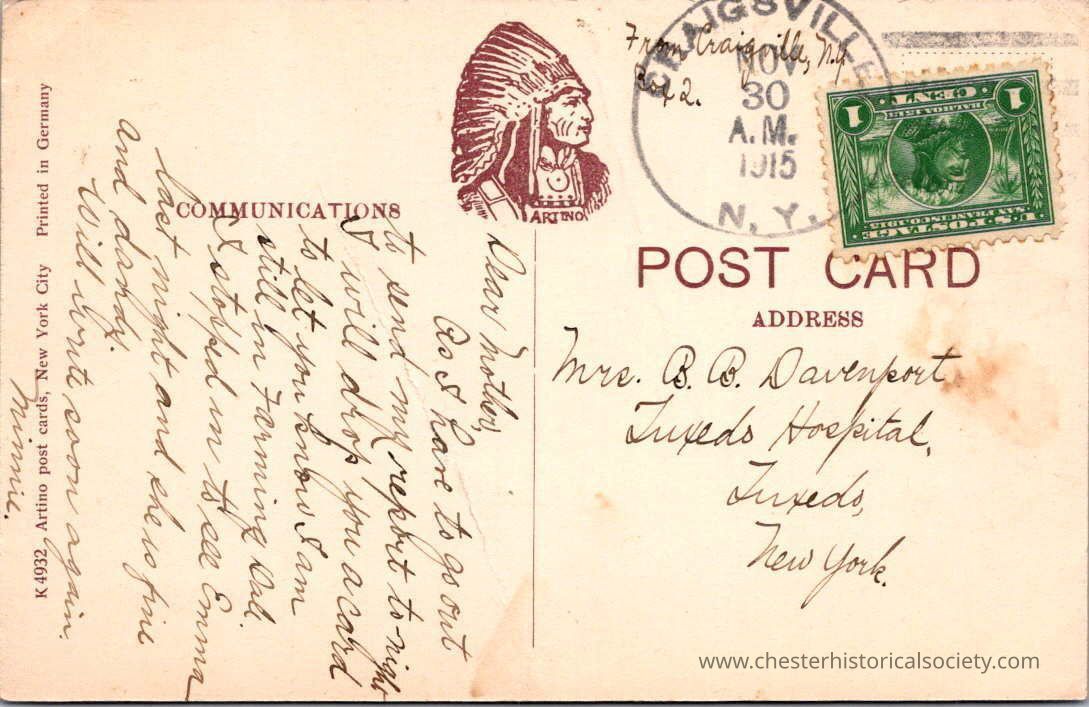 From Craigville, N.Y.
Box 2.
CRAIGSVILLE
NOV
30
A.M.
1915
N.Y.
1 CENT 1
BALBOA 1513
SAN FRANCISCO 1915
U.S. POSTAGE
ARTINO
POST CARD
ADDRESS
Mrs. B. B. Davenport
Tuxedo Hospital,
Tuxedo,
New York.
COMMUNICATIONS
Dear Mother,
As I have to go out
to send my report to-night
I will drop you a card
to let you know I am
still in Farming Dal.
I stopped in to see Emma
last night and she is fine
and dandy.
Will write soon again.
Minnie.
K 4932 Artino post cards, New York City Printed in Germany
www.chesterhistoricalsociety.com